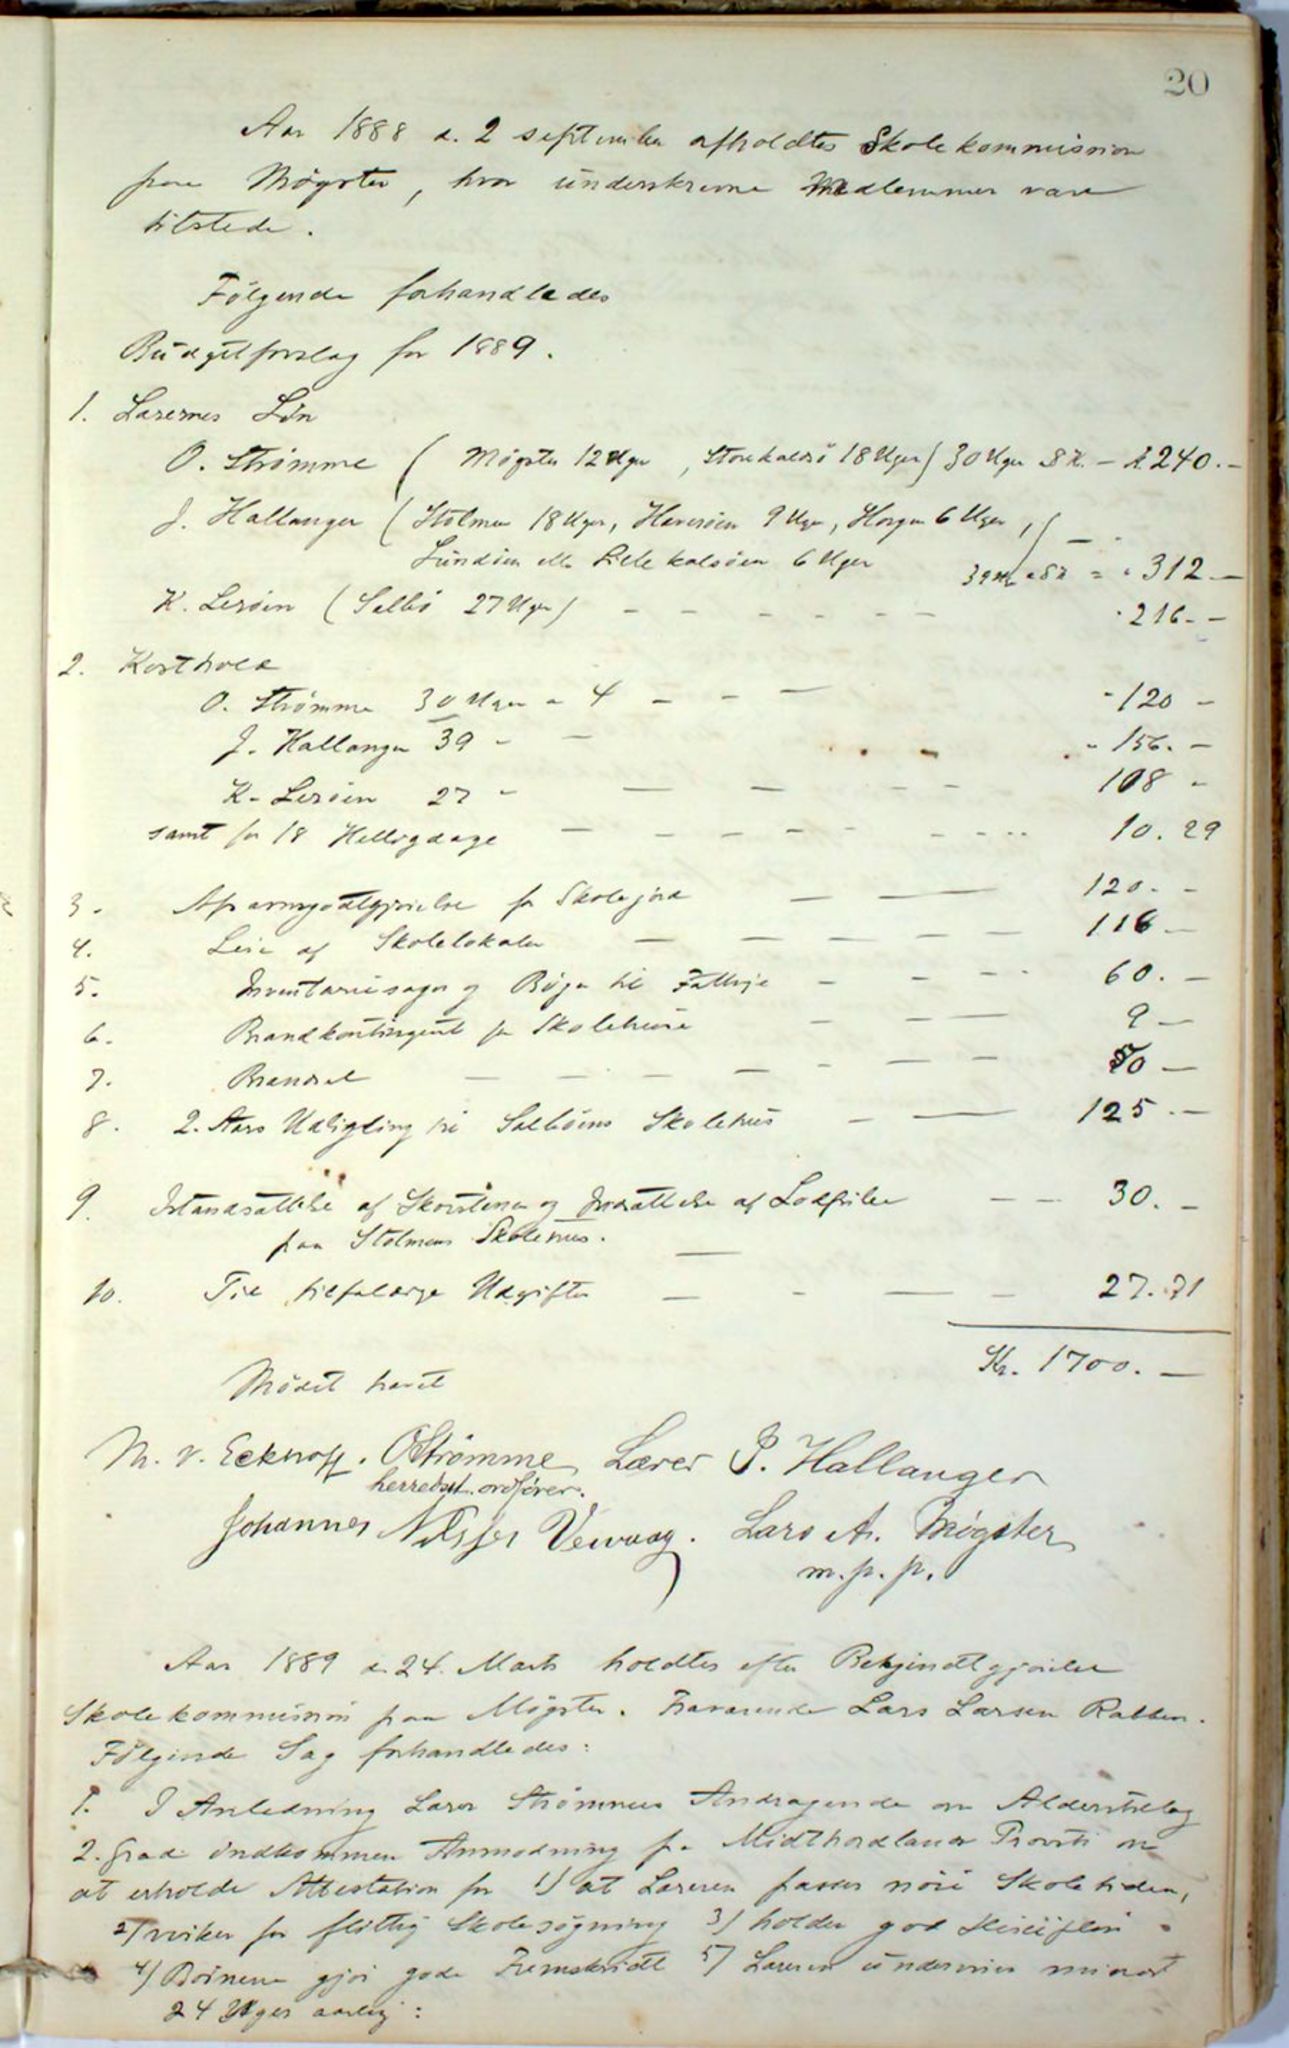 20
Aar 1888 d. 2 september afholdtes Skolekommission
paa Møgster, hvor underskrevne Medlemmer vare
tilstede.
Følgende forhandledes
Budgetforslag for 1889.
1. Lærernes Løn
O. Strømme ( Møgster 12 Uger, Storekalsö 18 Uger) 30 Uger 8 K. - K 240. -
J. Hallanger ( Stolmen 18 Uger, Haversöen 9 Uger, Horgen 6 Uger,
Lundöen eller Lillekalsöen 6 Uger 39 U. a 8 K = " 312 -
K. Leröen ( Selbö 27 Uger) - - - - - - " 216. -
2. Kosthold
O. Strømme 30 Uger a 4 - - - " 120 -
J. Hallanger 39 " - " 156. -
K. Leröen 27 " - - - - 108 -
samt for 18 Helligdage - - - - - - 10. 29
3. Afsavnsgodtgjörelse for Skolejord - - 120. -
4. Leie af Skolelokaler - - - - - 116 -
5. Inventariesager og Böger til Fattige - - - 60. -
6. Brandkontingent for Skolehuse - - - 9 -
7. Brændsel - - - - - - - 50 -
8. 2. Aars Udligning til Selböens Skolehus - - 125. -
9. Istandsættelse af Skorstenen og Indsættelse af Lodpiber - - 30. -
paa Stolmens Skolehus. -
10. Til tilfældige Udgifter - - - - 27. 71
Kr. 1700. -
Mödet hævet
M. v. Eckhoff. OStrömme, Lærer J. Hallanger
herredsst. ordfører.
Johannes Nilssen Vevaag. Lars A. Møgster
m. p. p.
Aar 1889 d. 24. Marts holdtes efter Bekjendtgjörelse
Skolekommission paa Møgster. Fraværende Lars Larsen Rabben.
Fölgende Sag forhandledes:
1. I Anledning Lærer Strömmes Andragende om Alderstillæg
2. Grad indkommen Anmodning fra Midthordlands Provsti om
at erholde Attestation for 1) at Læreren passer nöie Skoletiden,
2) virker for flittig Skolesögning 3) holder god Disciplin
4) Börnene gjör gode Fremskridt 5) Læreren underviser mindst
24 Uger aarlig: